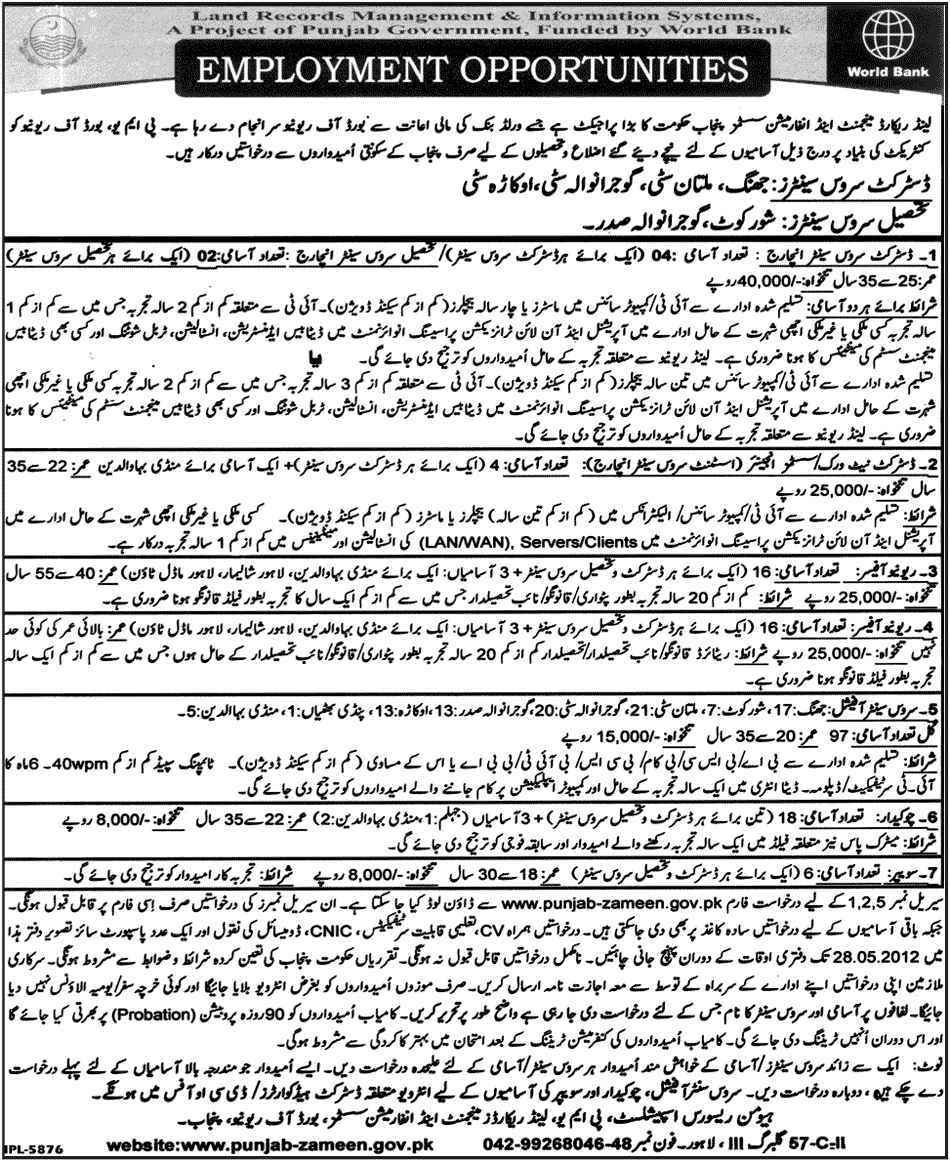 Land Records Management & Information Systems,
A Project of Punjab Government, Funded by World Bank
EMPLOYMENT OPPORTUNITIES
World Bank
لینڈ ریکارڈ مینجمنٹ اینڈ انفارمیشن سسٹمز پنجاب حکومت کا بڑا پراجیکٹ ہے جسے ورلڈ بنک کی مالی اعانت سے بورڈ آف ریونیو سر انجام دے رہا ہے۔ پی ایم یو، بورڈ آف ریونیو کو
کنٹریکٹ کی بنیاد پر درج ذیل آسامیوں کے لئے نیچے دیئے گئے اضلاع و تحصیلوں کے لیے صرف پنجاب کے سکونتی اُمیدواروں سے درخواستیں درکار ہیں۔
ڈسٹرکٹ سروس سینٹرز: جھنگ، ملتان سٹی، گوجرانوالہ سٹی، اوکاڑہ سٹی
تحصیل سروس سینٹرز: شورکوٹ، گوجرانوالہ صدر۔
1۔ ڈسٹرکٹ سروس سینٹر انچارج : تعداد آسامی :04 (ایک برائے ہر ڈسٹرکٹ سروس سینٹر)/ تحصیل سروس سینٹر انچارج : تعداد آسامی:02 (ایک برائے ہر تحصیل سروس سینٹر)
عمر:25 سے 35 سال تنخواہ: -/40,000 روپے
شرائط برائے ہر دو آسامی: تسلیم شدہ ادارے سے آئی ٹی/کمپیوٹر سائنس میں ماسٹرز یا چار سالہ بیچلرز (کم از کم سیکنڈ ڈویژن)۔ آئی ٹی سے متعلقہ کم از کم 2 سالہ تجربہ جس میں سے کم از کم 1
سالہ تجربہ کسی ملکی یا غیر ملکی اچھی شہرت کے حامل ادارے میں آپریشنل اینڈ آن لائن ٹرانزیکشن پراسیسنگ انوائرنمنٹ میں ڈیٹا بیس ایڈمنسٹریشن، انسٹالیشن، ٹربل شوٹنگ اور کسی بھی ڈیٹا بیس
مینجمنٹ سسٹم کی مینٹینس کا ہونا ضروری ہے۔ لینڈ ریونیو سے متعلقہ تجربہ کے حامل اُمیدواروں کو ترجیح دی جائے گی۔ یا
تسلیم شدہ ادارے سے آئی ٹی/کمپیوٹر سائنس میں تین سالہ بیچلرز (کم از کم سیکنڈ ڈویژن)۔ آئی ٹی سے متعلقہ کم از کم 3 سالہ تجربہ جس میں سے کم از کم 2 سالہ تجربہ کسی ملکی یا غیر ملکی اچھی
شہرت کے حامل ادارے میں آپریشنل اینڈ آن لائن ٹرانزیکشن پراسیسنگ انوائرنمنٹ میں ڈیٹا بیس ایڈمنسٹریشن، انسٹالیشن، ٹربل شوٹنگ اور کسی بھی ڈیٹا بیس مینجمنٹ سسٹم کی مینٹینس کا ہونا
ضروری ہے۔ لینڈ ریونیو سے متعلقہ تجربہ کے حامل اُمیدواروں کو ترجیح دی جائے گی۔
2۔ ڈسٹرکٹ نیٹ ورک/سسٹمز انجینئر (اسسٹنٹ سروس سینٹر انچارج): تعداد آسامی: 4 (ایک برائے ہر ڈسٹرکٹ سروس سینٹر)+ ایک آسامی برائے منڈی بہاوالدین عمر: 22 سے 35
سال تنخواہ: -/25,000 روپے
شرائط: تسلیم شدہ ادارے سے آئی ٹی/کمپیوٹر سائنس/ الیکٹرانکس میں (کم از کم تین سالہ) بیچلرز یا ماسٹرز (کم از کم سیکنڈ ڈویژن)۔ کسی ملکی یا غیر ملکی اچھی شہرت کے حامل ادارے میں
آپریشنل اینڈ آن لائن ٹرانزیکشن پراسیسنگ انوائرنمنٹ میں LAN/WAN), Servers/Clients) کی انسٹالیشن اور مینٹینس میں کم از کم 1 سالہ تجربہ درکار ہے۔
3۔ ریونیو آفیسر: تعداد آسامی: 16 (ایک برائے ہر ڈسٹرکٹ و تحصیل سروس سینٹر + 3 آسامیاں: ایک برائے منڈی بہاوالدین، لاہور شالیمار، لاہور ماڈل ٹاؤن) عمر: 40 سے 55 سال
تنخواہ: -/25,000 روپے شرائط: کم از کم 20 سالہ تجربہ بطور پٹواری/قانونگو/نائب تحصیلدار جس میں سے کم از کم ایک سال کا تجربہ بطور فیلڈ قانونگو ہونا ضروری ہے۔
4۔ ریونیو آفیسر: تعداد آسامی: 16 (ایک برائے ہر ڈسٹرکٹ و تحصیل سروس سینٹر + 3 آسامیاں: ایک برائے منڈی بہاوالدین، لاہور شالیمار، لاہور ماڈل ٹاؤن) عمر: بالائی عمر کی کوئی حد
نہیں تنخواہ: -/25,000 روپے شرائط: ریٹائرڈ قانونگو/نائب تحصیلدار/تحصیلدار کم از کم 20 سالہ تجربہ بطور پٹواری/قانونگو/نائب تحصیلدار کے حامل ہوں جس میں سے کم از کم ایک سالہ
تجربہ بطور فیلڈ قانونگو ہونا ضروری ہے۔
5۔ سروس سینٹر آفیشل: جھنگ:17، شورکوٹ:7، ملتان سٹی:21، گوجرانوالہ سٹی:20، گوجرانوالہ صدر:13، اوکاڑہ:13، پنڈی بھٹیاں:1، منڈی بہاالدین:5۔
کُل تعداد آسامی: 97 عمر: 20 سے 35 سال تنخواہ: -/15,000 روپے
شرائط: تسلیم شدہ ادارے سے بی اے/بی ایس سی/بی کام/بی سی ایس/بی آئی ٹی/بی بی اے یا اس کے مساوی (کم از کم سیکنڈ ڈویژن)۔ ٹائپنگ سپیڈ کم از کم 40wpm۔ 6 ماہ کا
آئی۔ٹی سرٹیفکیٹ/ڈپلومہ۔ ڈیٹا انٹری میں ایک سالہ تجربہ کے حامل اور کمپیوٹر ایپلیکیشن پر کام جاننے والے امیدواروں کو ترجیح دی جائے گی۔
6۔ چوکیدار: تعداد آسامی: 18 (تین برائے ہر ڈسٹرکٹ و تحصیل سروس سینٹر) + 3 آسامیاں (جہلم:1، منڈی بہاوالدین:2) عمر: 22 سے 35 سال تنخواہ: -/8,000 روپے
شرائط: میٹرک پاس نیز متعلقہ فیلڈ میں ایک سالہ تجربہ رکھنے والے امیدوار اور سابقہ فوجی کو ترجیح دی جائے گی۔
7۔ سویپر: تعداد آسامی: 6 (ایک برائے ہر ڈسٹرکٹ و تحصیل سروس سینٹر) عمر: 18 سے 30 سال تنخواہ: -/8,000 روپے شرائط: تجربہ کار امیدوار کو ترجیح دی جائے گی۔
سیریل نمبر 1,2,5 کے لیے درخواست فارم www.punjab-zameen.gov.pk سے ڈاؤن لوڈ کیا جا سکتا ہے۔ ان سیریل نمبرز کی درخواستیں صرف اِسی فارم پر قابل قبول ہونگی۔
جبکہ باقی آسامیوں کے لیے درخواستیں سادہ کاغذ پر بھی دی جاسکتی ہیں۔ درخواستیں ہمراہ CV، تعلیمی قابلیت سرٹیفکیٹس، CNIC، ڈومیسائل کی نقول اور ایک عدد پاسپورٹ سائز تصویر دفتر ہذا
میں 28.05.2012 تک دفتری اوقات کے دوران پہنچ جانی چاہئیں۔ نامکمل درخواستیں قابل قبول نہ ہونگی۔ تقرریاں حکومت پنجاب کی تعین کردہ شرائط و ضوابط سے مشروط ہونگی۔ سرکاری
ملازمین اپنی درخواستیں اپنے ادارے کے سربراہ کے توسط سے معہ اجازت نامہ ارسال کریں۔ صرف موزوں اُمیدواروں کو بغرض انٹرویو بلایا جائیگا اور کوئی خرچہ سفر/یومیہ الاؤنس نہیں دیا
جائیگا۔ لفافوں پر آسامی اور سروس سینٹر کا نام جس کے لئے درخواست دی جارہی ہے واضح طور پر تحریر کریں۔ کامیاب اُمیدواروں کو 90 روزہ پروبیشن (Probation) پر بھرتی کیا جائے گا
اور اس دوران اُنہیں ٹریننگ دی جائے گی۔ کامیاب اُمیدواروں کی کنفرمیشن ٹریننگ کے بعد امتحان میں بہتر کارکردگی سے مشروط ہوگی۔
نوٹ: ایک سے زائد سروس سینٹرز/آسامی کے خواہش مند اُمیدوار ہر سروس سینٹر/آسامی کے لئے علیحدہ درخواست دیں۔ ایسے اُمیدوار جو مندرجہ بالا آسامیاں کے لئے پہلے درخواست
دے چکے ہیں، دوبارہ درخواست دیں۔ سروس سنٹر آفیشل، چوکیدار اور سویپر کی آسامیوں کے لیے انٹرویو متعلقہ ڈسٹرکٹ ہیڈکوارٹرز/ڈی سی او آفس میں ہونگے۔
ہیومن ریسورس اسپیشلسٹ، پی ایم یو، لینڈ ریکارڈز مینجمنٹ اینڈ انفارمیشن سسٹمز، بورڈ آف ریونیو، پنجاب۔
57-C-II گلبرگ III ، لاہور۔ فون نمبر 48-042-99268046 website:www.punjab-zameen.gov.pk
IPL-5876